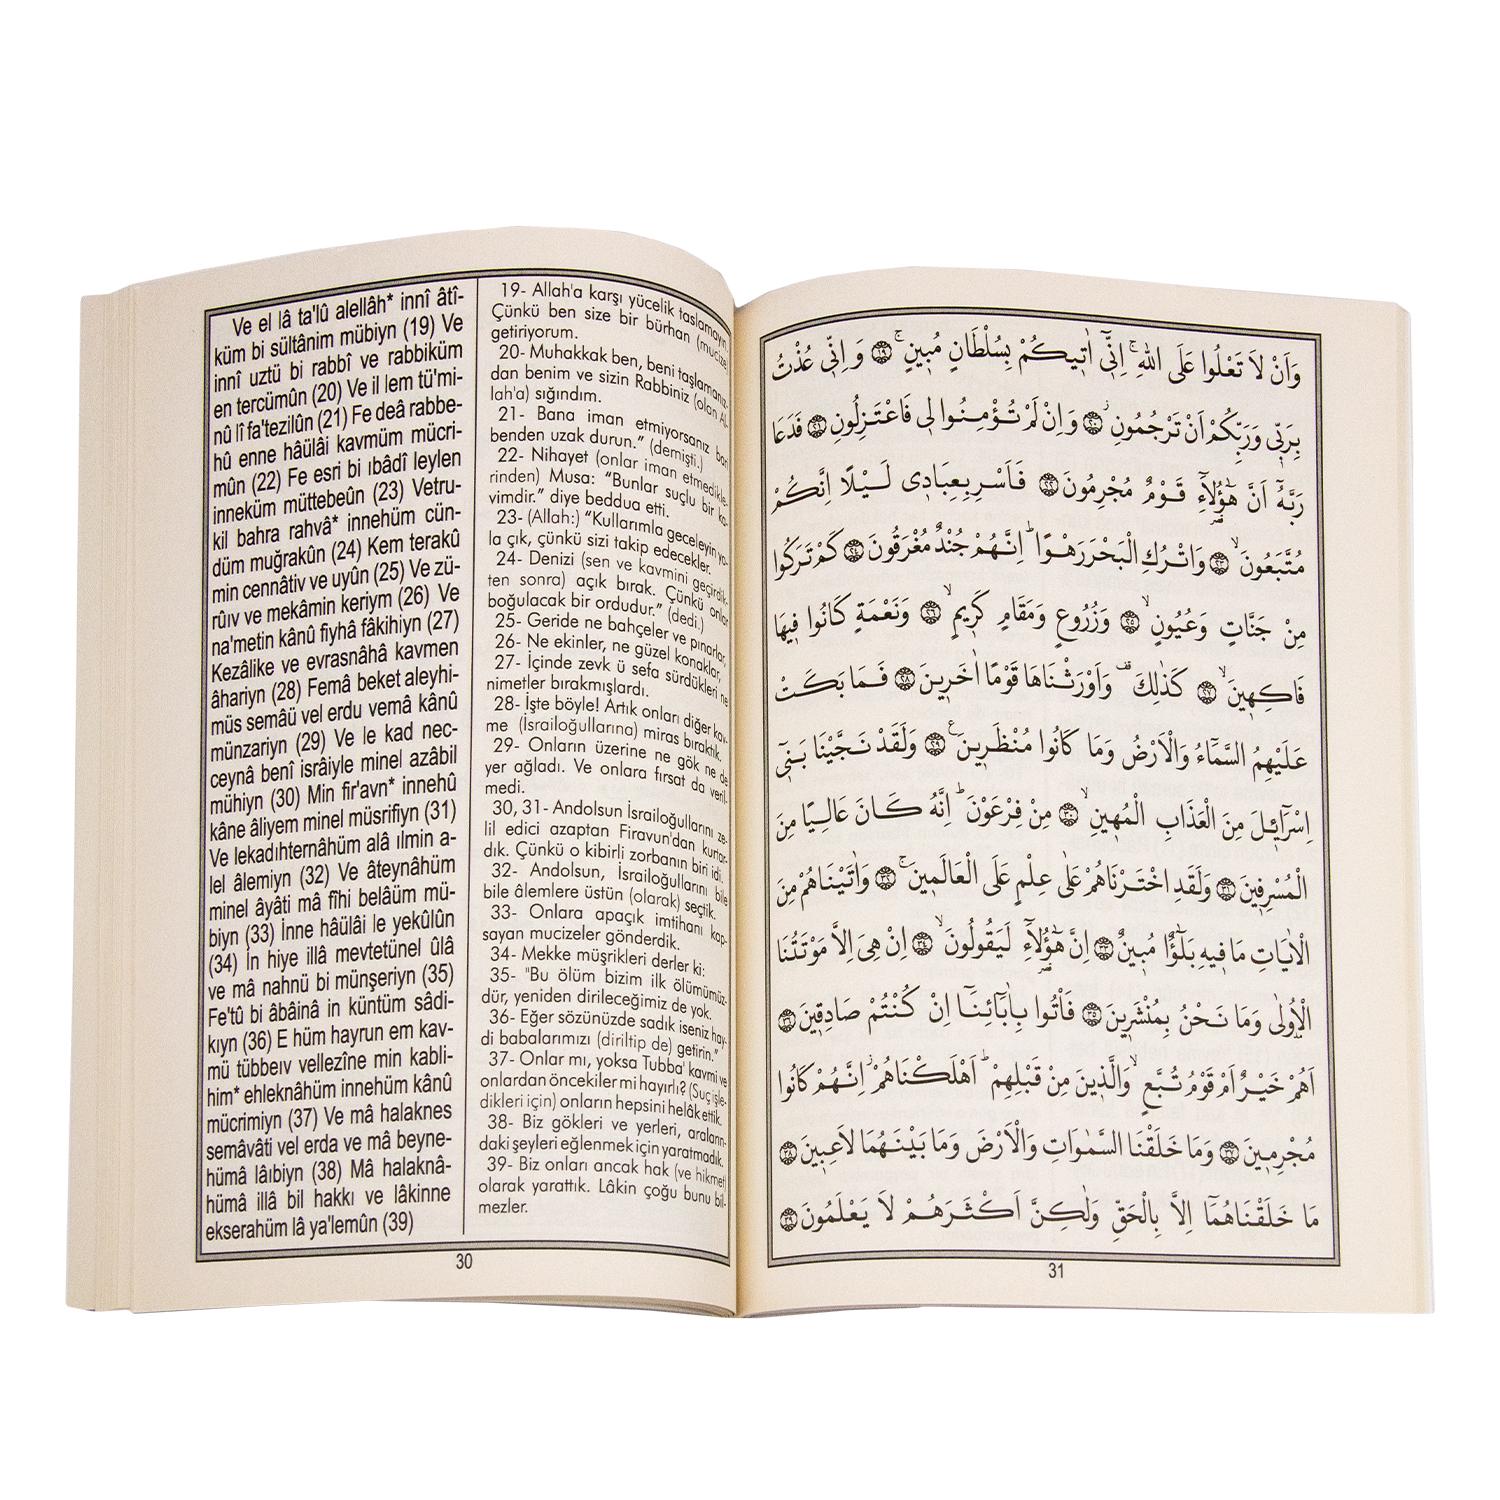 Ve el lâ ta'lû alellâh* innî âtî-
küm bi sültânim mübiyn (19) Ve
innî uztü bi rabbî ve rabbiküm
en tercümûn (20) Ve il lem tü'mi-
nû lî fa'tezilûn (21) Fe deâ rabbe-
hû enne hâülâi kavmüm mücri-
mûn (22) Fe esri bi ıbâdî leylen
inneküm müttebeûn (23) Vetru-
kil bahra rahvâ* innehüm cün-
düm muğrakûn (24) Kem terakû
min cennâtiv ve uyûn (25) Ve zü-
rûıv ve mekâmin keriym (26) Ve
na'metin kânû fiyhâ fâkihiyn (27)
Kezâlike ve evrasnâhâ kavmen
âhariyn (28) Femâ beket aleyhi-
müs semâü vel erdu vemâ kânû
münzariyn (29) Ve le kad nec-
ceynâ benî isrâiyle minel azâbil
mühiyn (30) Min fir'avn* innehû
kâne âliyem minel müsrifiyn (31)
Ve lekadıhternâhüm alâ ılmin a-
lel âlemiyn (32) Ve âteynâhüm
minel âyâti mâ fîhi belâüm mü-
biyn (33) İnne hâülâi le yekûlûn
(34) İn hiye illâ mevtetünel ûlâ
ve mâ nahnü bi münşeriyn (35)
Fe'tû bi âbâinâ in küntüm sâdi-
kıyn (36) E hüm hayrun em kav-
mü tübbeıv vellezîne min kabli-
him* ehleknâhüm innehüm kânû
mücrimiyn (37) Ve mâ halaknes
semâvâti vel erda ve mâ beyne-
hümâ lâıbiyn (38) Mâ halaknâ-
hümâ illâ bil hakkı ve lâkinne
ekserahüm lâ ya'lemûn (39)
19- Allah'a karşı yücelik taslamayın.
Çünkü ben size bir bürhan (mucize)
getiriyorum.
20- Muhakkak ben, beni taşlamanız-
dan benim ve sizin Rabbiniz (olan Al-
lah'a) sığındım.
21- Bana iman etmiyorsanız bari
benden uzak durun." (demişti.)
22- Nihayet (onlar iman etmedikle-
rinden) Musa: "Bunlar suçlu bir ka-
vimdir." diye beddua etti.
23- (Allah:) "Kullarımla geceleyin yo-
la çık, çünkü sizi takip edecekler.
24- Denizi (sen ve kavmini geçirdik-
ten sonra) açık bırak. Çünkü onlar
boğulacak bir ordudur." (dedi.)
25- Geride ne bahçeler ve pınarlar,
26- Ne ekinler, ne güzel konaklar,
27- İçinde zevk ü sefa sürdükleri ne
nimetler bırakmışlardı.
28- İşte böyle! Artık onları diğer kav-
me (İsrailoğullarına) miras bıraktık.
29- Onların üzerine ne gök ne de
yer ağladı. Ve onlara fırsat da veril-
medi.
30, 31- Andolsun İsrailoğullarını ze-
lil edici azaptan Firavun'dan kurtar-
dık. Çünkü o kibirli zorbanın biri idi.
32- Andolsun, İsrailoğullarını bile
bile âlemlere üstün (olarak) seçtik.
33- Onlara apaçık imtihanı kap-
sayan mucizeler gönderdik.
34- Mekke müşrikleri derler ki:
35- "Bu ölüm bizim ilk ölümümüz-
dür, yeniden dirileceğimiz de yok.
36- Eğer sözünüzde sadık iseniz hay-
di babalarımızı (diriltip de) getirin."
37- Onlar mı, yoksa Tubba' kavmi ve
onlardan öncekiler mi hayırlı? (Suç işle-
dikleri için) onların hepsini helâk ettik.
38- Biz gökleri ve yerleri, araların-
daki şeyleri eğlenmek için yaratmadık.
39- Biz onları ancak hak (ve hikmet)
olarak yarattık. Lâkin çoğu bunu bil-
mezler.
30
وَاَنْ لَا تَعْلُوا عَلَى اللّٰهِ ۚ اِنّٖٓي اٰتٖيكُمْ بِسُلْطَانٍ مُبٖينٍ ۚ ﴿١٩﴾ وَاِنّٖي عُذْتُ
بِرَبّٖي وَرَبِّكُمْ اَنْ تَرْجُمُونِ ۘ ﴿٢٠﴾ وَاِنْ لَمْ تُؤْمِنُوا لٖي فَاعْتَزِلُونِ ﴿٢١﴾ فَدَعَا
رَبَّهُٓ اَنَّ هٰٓؤُ۬لَٓاءِ قَوْمٌ مُجْرِمُونَ ﴿٢٢﴾ فَاَسْرِ بِعِبَادٖي لَيْلًا اِنَّكُمْ
مُتَّبَعُونَ ۙ ﴿٢٣﴾ وَاتْرُكِ الْبَحْرَ رَهْوًا ۜ اِنَّهُمْ جُنْدٌ مُغْرَقُونَ ﴿٢٤﴾ كَمْ تَرَكُوا
مِنْ جَنَّاتٍ وَعُيُونٍ ۙ ﴿٢٥﴾ وَزُرُوعٍ وَمَقَامٍ كَرٖيمٍ ۙ ﴿٢٦﴾ وَنَعْمَةٍ كَانُوا فٖيهَا
فَاكِهٖينَ ۙ ﴿٢٧﴾ كَذٰلِكَ ۠ وَاَوْرَثْنَاهَا قَوْمًا اٰخَرٖينَ ﴿٢٨﴾ فَمَا بَكَتْ
عَلَيْهِمُ السَّمَٓاءُ وَالْاَرْضُ وَمَا كَانُوا مُنْظَرٖينَ ۟ ﴿٢٩﴾ وَلَقَدْ نَجَّيْنَا بَنٖٓي
اِسْرَٓائٖلَ مِنَ الْعَذَابِ الْمُهٖينِ ۙ ﴿٣٠﴾ مِنْ فِرْعَوْنَ ۜ اِنَّهُ كَانَ عَالِيًا مِنَ
الْمُسْرِفٖينَ ﴿٣١﴾ وَلَقَدِ اخْتَرْنَاهُمْ عَلٰى عِلْمٍ عَلَى الْعَالَمٖينَ ۚ ﴿٣٢﴾ وَاٰتَيْنَاهُمْ مِنَ
الْاٰيَاتِ مَا فٖيهِ بَلٰٓؤٌا مُبٖينٌ ﴿٣٣﴾ اِنَّ هٰٓؤُ۬لَٓاءِ لَيَقُولُونَ ۙ ﴿٣٤﴾ اِنْ هِيَ اِلَّا مَوْتَتُنَا
الْاُو۫لٰى وَمَا نَحْنُ بِمُنْشَرٖينَ ﴿٣٥﴾ فَأْتُوا بِاٰبَٓائِنَٓا اِنْ كُنْتُمْ صَادِقٖينَ ﴿٣٦﴾
اَهُمْ خَيْرٌ اَمْ قَوْمُ تُبَّعٍ ۙ وَالَّذٖينَ مِنْ قَبْلِهِمْ ۜ اَهْلَكْنَاهُمْ ۘ اِنَّهُمْ كَانُوا
مُجْرِمٖينَ ﴿٣٧﴾ وَمَا خَلَقْنَا السَّمٰوَاتِ وَالْاَرْضَ وَمَا بَيْنَهُمَا لَاعِبٖينَ ﴿٣٨﴾
مَا خَلَقْنَاهُمَٓا اِلَّا بِالْحَقِّ وَلٰكِنَّ اَكْثَرَهُمْ لَا يَعْلَمُونَ ﴿٣٩﴾
31